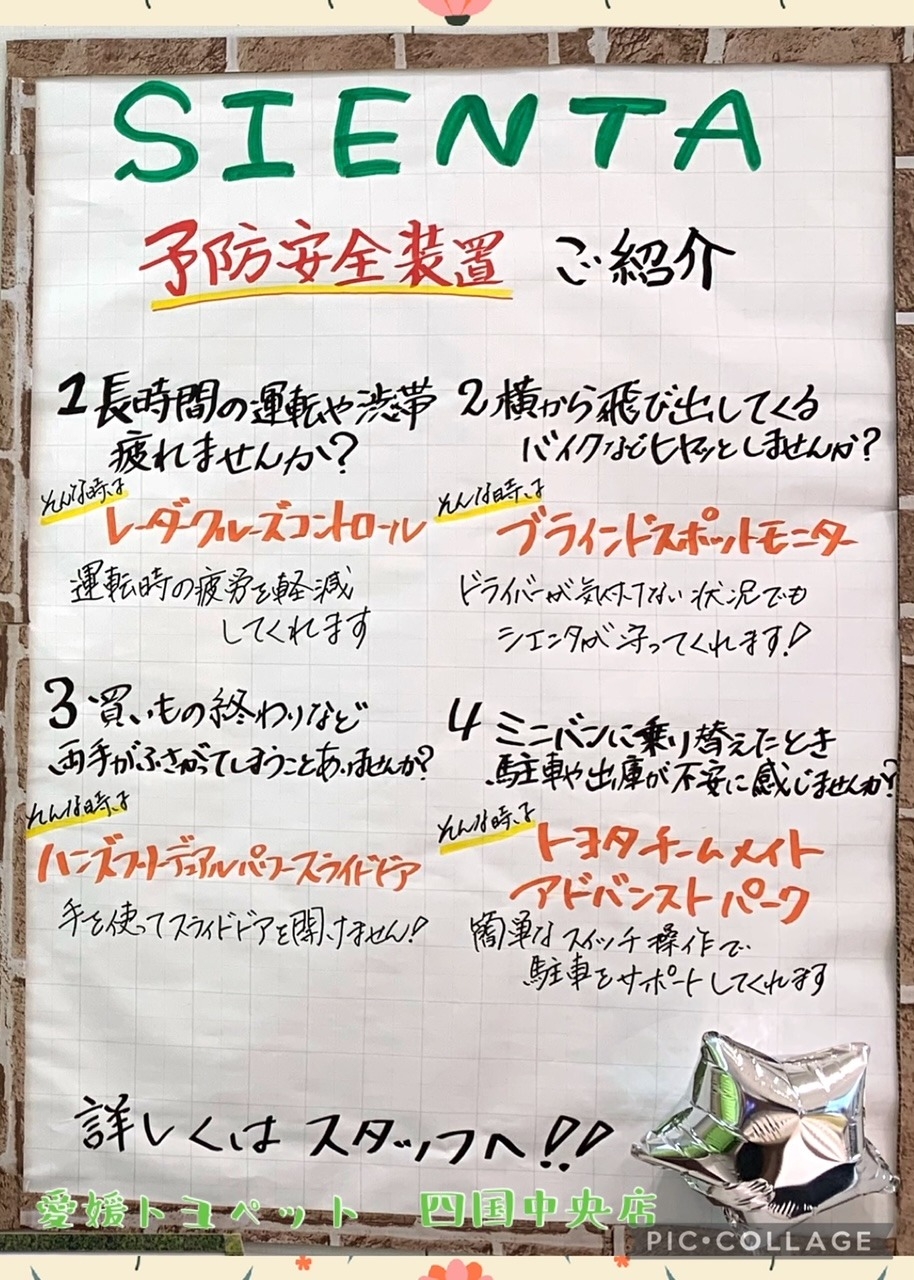 SIENTA
予防安全装置 ご紹介
1 長時間の運転や渋帯
疲れませんか?
そんな時は
レーダークルーズコントロール
運転時の疲労を軽減
してくれます
2 横から飛び出してくる
バイクなどヒヤッとしませんか?
そんな時は
ブラインドスポットモニター
ドライバーが気付けない状況でも
シエンタが守ってくれます!
3 買いもの終わりなど
両手がふさがってしまうことありませんか?
そんな時は
ハンズフリーデュアルパワースライドドア
手を使ってスライドドアを開けません!
4 ミニバンに乗り替えたとき
駐車や出庫が不安に感じませんか?
そんな時は
トヨタチームメイト
アドバンストパーク
簡単なスイッチ操作で
駐車をサポートしてくれます
詳しくはスタッフへ!!
愛媛トヨペット 四国中央店
PIC•COLLAGE